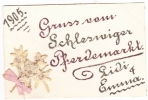 1905.
Gruss vom
Schleswiger
Pferdemarkt.
Lidi &
Emma.